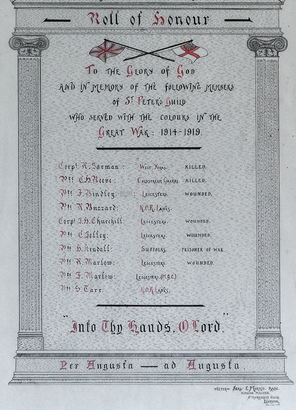 Roll of Honour
To the Glory of God
and in memory of the following members
of St Peters Guild
who served with the colours in the
Great War - 1914-1919.
Corpl R. Sarman : West Yorks. KILLED.
Pte C.S. Reeve : Coldstream Guards KILLED.
Pte F. Hindley : Leicesters. WOUNDED.
Pte R. Buzzard : R.O.R. Lancs.
Corpl J.S. Churchill Leicesters. WOUNDED.
Pte C. Jelley : Leicesters. WOUNDED.
Pte H. Kendall Suffolks. PRISONER OF WAR
Pte R. Marlow : Leicesters. WOUNDED.
Pte F. Marlow : Leicesters
Pte S. Tarr Lancs.
"Into Thy Hands, O Lord."
Per Angusta — ad Augusta